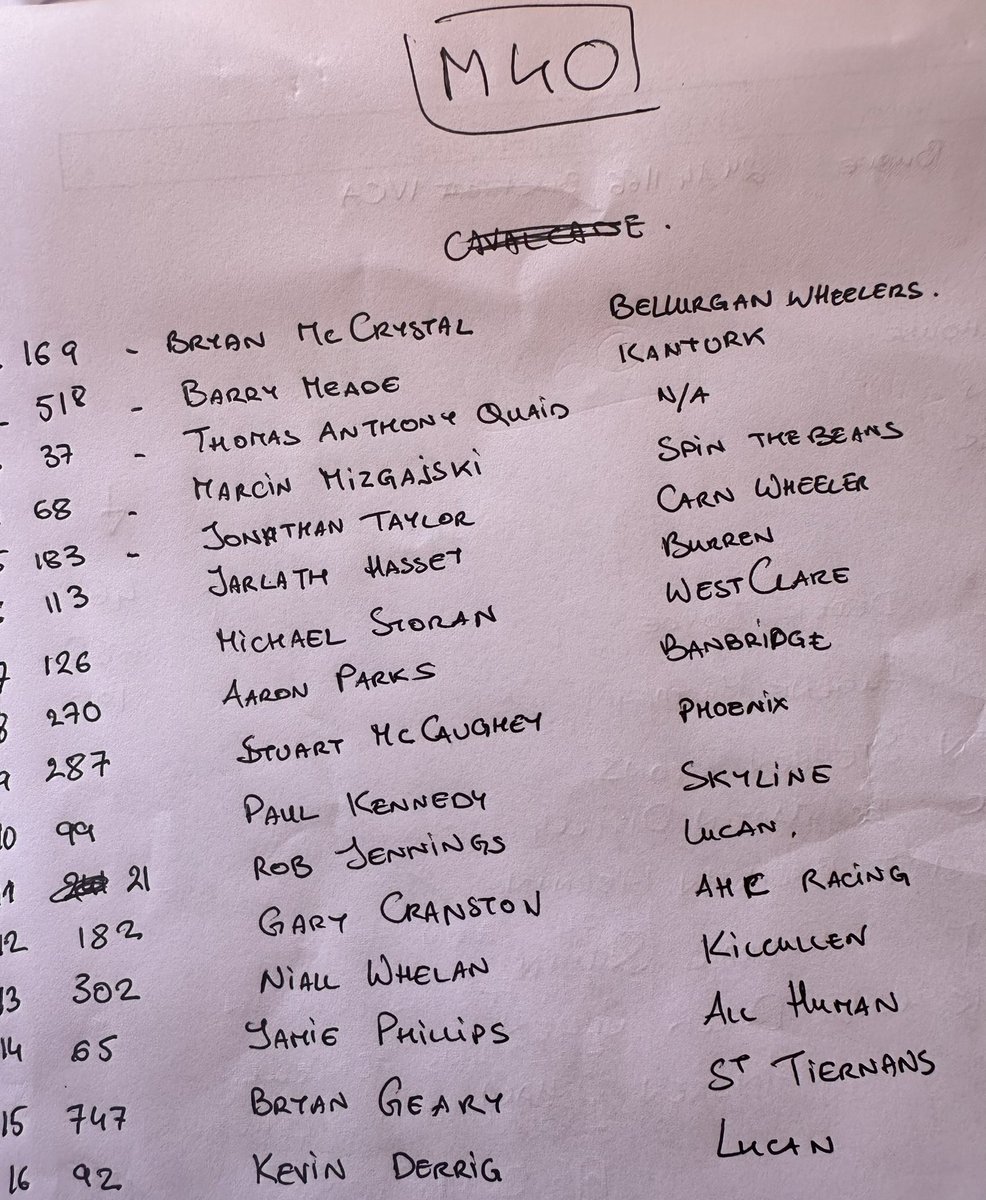 M40
CAVALCADE.
169 - BRYAN MCCRYSTAL BELLURGAN WHEELERS.
518 - BARRY MEADE KANTURK
37 - THOMAS ANTHONY QUAID N/A
68 - MARCIN MIZGAJSKI SPIN THE BEANS
5 183 - JONATHAN TAYLOR CARN WHEELER
113 JARLATH HASSET BURREN
7 126 MICHAEL STORAN WEST CLARE
8 270 AARON PARKS BANBRIDGE
9 287 STUART MCCAUGHEY PHOENIX
10 99 PAUL KENNEDY SKYLINE
11 21 ROB JENNINGS LUCAN.
12 182 GARY CRANSTON AHC RACING
13 302 NIALL WHELAN KILCULLEN
14 65 JAMIE PHILLIPS ALL HUMAN
15 747 BRYAN GEARY ST TIERNANS
16 92 KEVIN DERRIG LUCAN